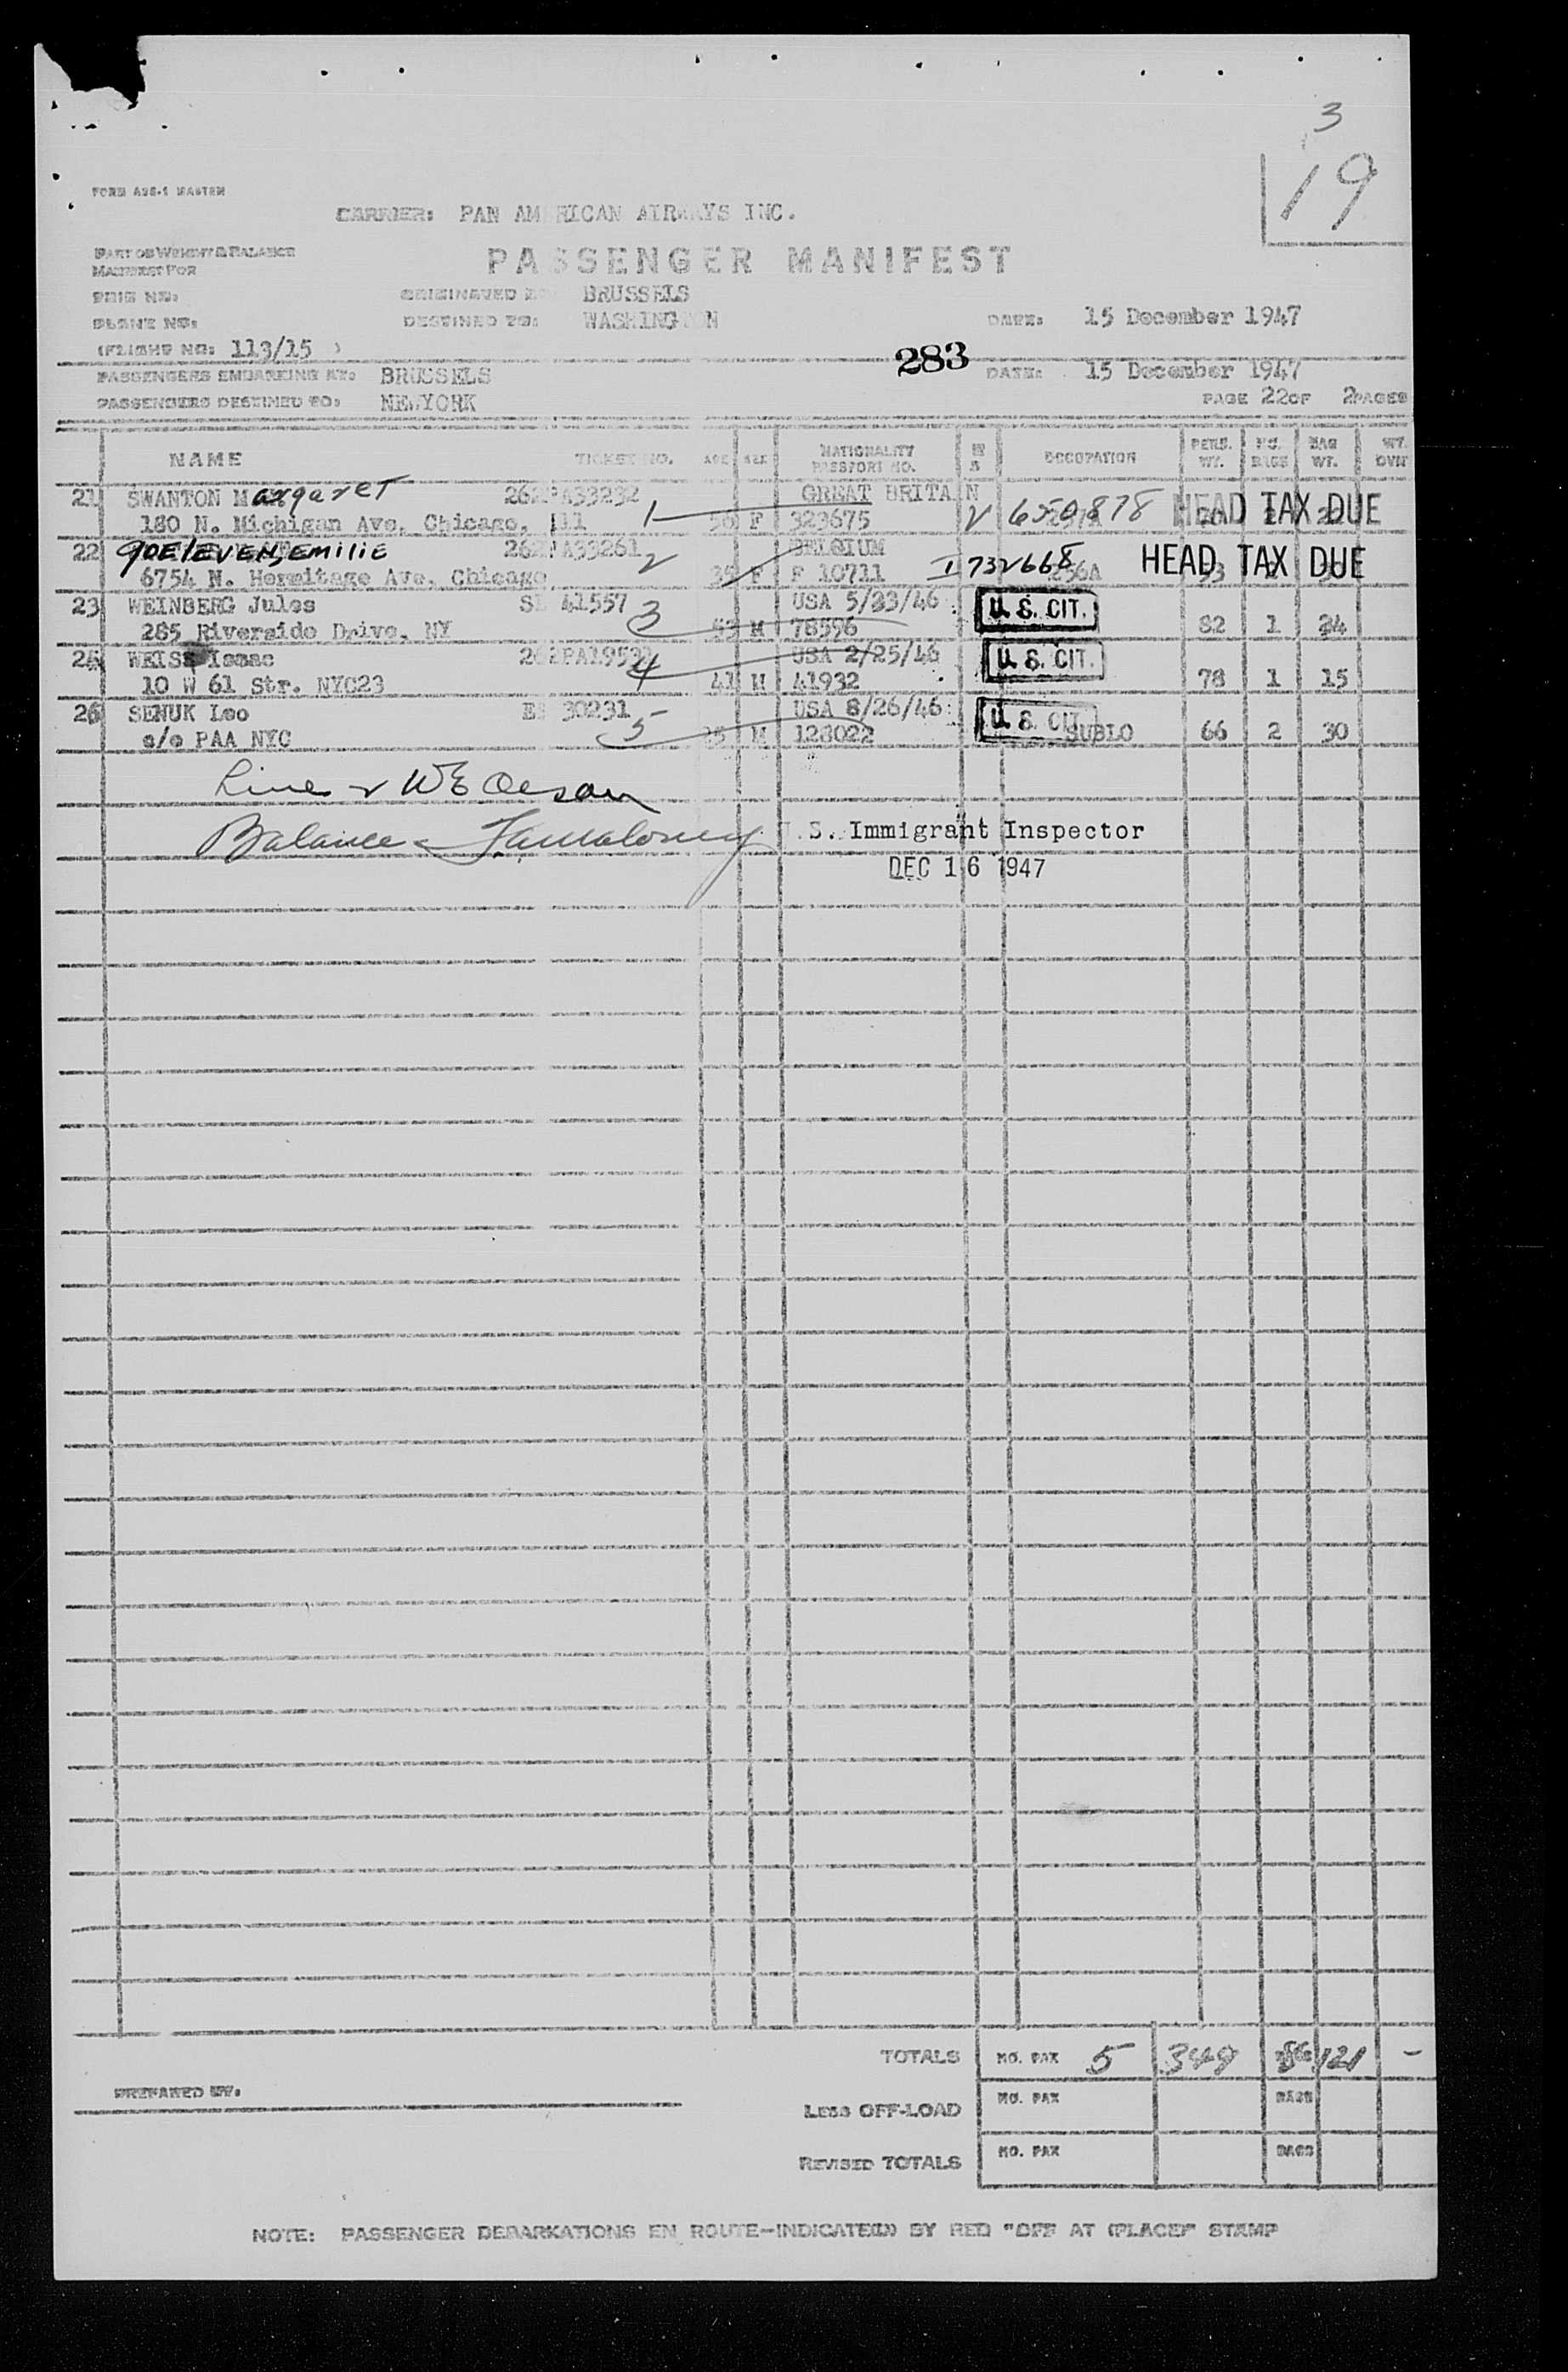 3
19
FORM A26-1 MASTER
CARRIER: PAN AMERICAN AIRWAYS INC.
PART OF WEIGHT & BALANCE
MANIFEST FOR
PASSENGER MANIFEST
TRIP NO:
ORIGINATED BRUSSELS
PLANE NO:
DESTINED TO: WASHINGTON
DATE: 15 December 1947
(FLIGHT NO: 113/15 )
283
PASSENGERS EMBARKING AT: BRUSSELS
DATE: 15 December 1947
PASSENGERS DESTINED TO: NEWYORK
PAGE 22OF 2PAGES
NAME TICKET NO. AGE SEX NATIONALITY PASSPORT NO. OCCUPATION PERS. WT. NO. BAGS BAG WT. WT.
21 SWANTON Margaret 262PA33232 1 GREAT BRITAIN 650878 HEAD TAX DUE
180 N. Michigan Ave, Chicago, Ill F 323675
22 GOELEVEN, Emilie 262PA33261 2 BELGIUM I 732668 HEAD TAX DUE
6754 N. Hermitage Ave, Chicago 35 F F 10711
23 WEINBERG Jules 41557 3 USA 5/23/46 U. S. CIT.
285 Riverside Drive, NY 53 M 78596 82 1 24
WEISS Isaac 262PA1953 4 USA 2/25/46 U. S. CIT.
10 W 61 Str. NYC23 41 M 41932 78 1 15
SENUK Leo 30231 5 USA 8/26/46 U. S. CIT
c/o PAA NYC M 128022 SUBLO 66 2 30
Balance
U.S. Immigrant Inspector
DEC 16 1947
TOTALS NO. PAX 5 349 121 -
PREPARED BY:
LESS OFF-LOAD NO. PAX BAGS
REVISED TOTALS NO. PAX BAGS
NOTE: PASSENGER DEBARKATIONS EN ROUTE—INDICATE(D) BY RED "OFF AT (PLACE)" STAMP